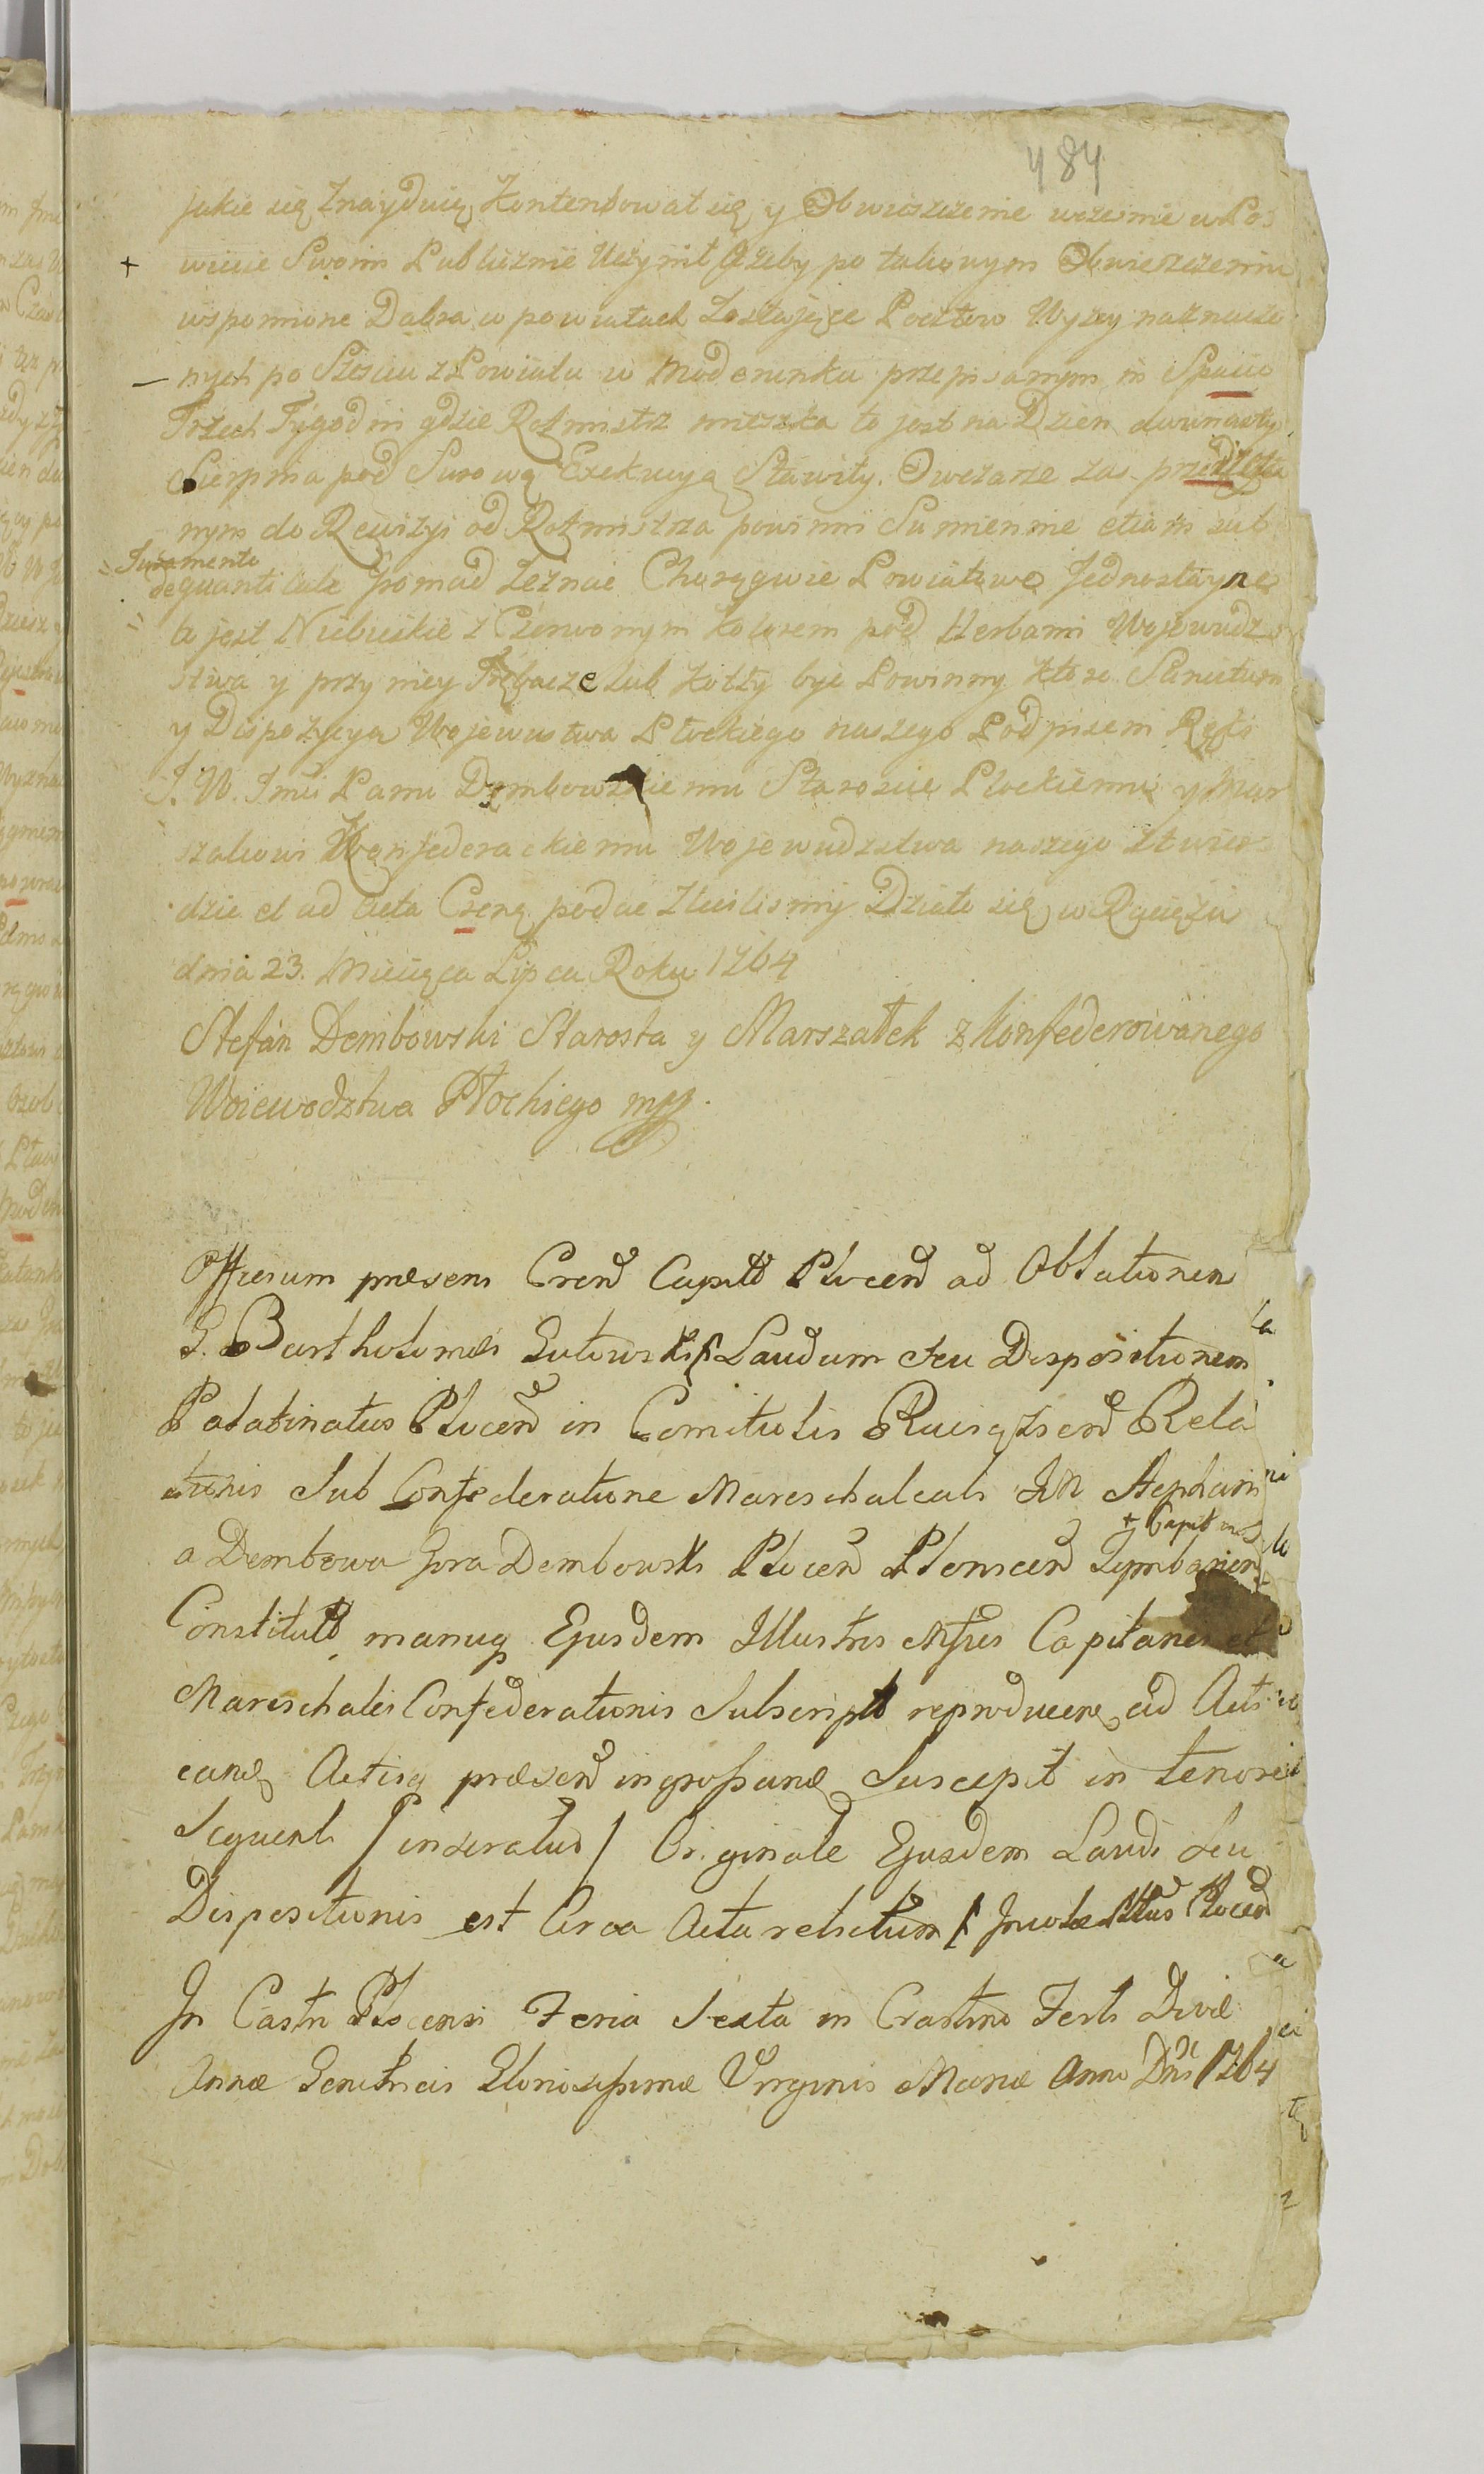 484
jakie się znayduią kontentował się y Obwieszczenie wcześnie w Po=
wiecie Swoim Publicznie Uczynił Ażeby po takowym Obwieszczeniu
wspomione Dobra w powiatach zostające Pocztow Wyzey naznaczo
nych po Sześciu z Powiatu w Moderunku przepisanym in Spatio
Trzech Tygodni gdzie Rotmistrz mieszka to jest na Dzien dwunasty
Sierpnia pod Surową Exekucyą Stawiły. Owczarze zas
nym do Rewizyi od Rotmistrza powinni Sumiennie etiam sub
Juramento
de quantitate Gromad zeznać Chorągwie Powiatowe Jednostayne
to jest Niebieskie z Czerwonym kolorem pod Herbami Wojewudz=
stwa y przy niey Trębacze lub kotły być Powinny które Sancitum
y Dispozycyą Wojewustwa Płockiego naszego Podpisem Ręki
J. W. Jmći Panu Dembowskiemu Staroście Płockiemu y Mar
szałkowi Konfederackiemu Wojewudzstwa naszego ztwier=
dzić et ad Acta podać zleciliśmy Działo się w Raciążu
dnia 23. Miesiąca Lipca Roku 1764
Stefan Dembowski Starosta y Marszałek zkonfederowanego
Woiewodztwa Płockiego mpp.
Officium præsens Cren̄ Capitt Plocen̄ ad Oblationem
G. Bartholomæi Gutowski Laudum seu Dispositionem
Palatinatus Plocen̄ in Comitiolis Raciążsen̄ Rela
tionis Sub Confœderatione Mareschalcali Stephani
+ Capitanei
a Dembowa Gora Dembowski Plocen̄ Plonscen̄ Tymbarien̄
Constitutt manuq Ejusdem Illustris Mfici Capitanei et
Mareschalci Confederationis Subscriptt reproducere ad Acti
care Actisq præsen̄ ingrossare Suscepit in tenore
Sequenti / inseratur / Originale Ejusdem Laudi seu
Dispositionis est Circa Acta relictum Plocen̄
In Castro Plocensi Feria Sexta in Crastino Festi Divæ
Annæ Genitricis Gloriosissimæ Virginis Mariæ Anno Dni 1764